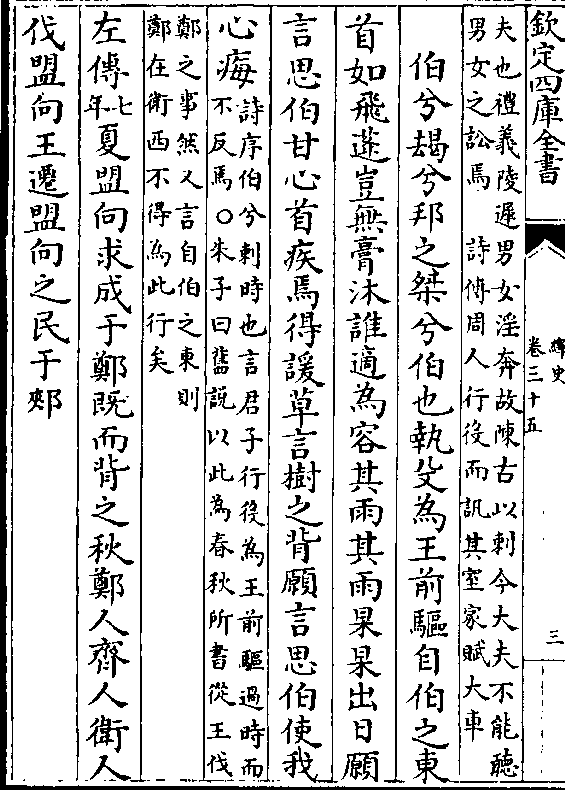 欽定四庫全書
繹史
卷三十五
三
夫也禮義陵遲男女淫奔故陳古以刺今大夫不能聽
男女之訟焉　詩傳周人行役而訊其室家賦大車
伯兮朅兮邦之桀兮伯也執殳為王前驅自伯之東
首如飛蓬豈無膏沐誰適為容其雨其雨杲杲出日願
言思伯甘心首疾焉得諼草言樹之背願言思伯使我
心痗詩序伯兮刺時也言君子行役為王前驅過時而
不反焉○朱子曰舊說以此為春秋所書從王伐
鄭之事然又言自伯之東則
鄭在衛西不得為此行矣
左傳七年夏盟向求成于鄭既而背之秋鄭人齊人衛人
伐盟向王遷盟向之民于郟